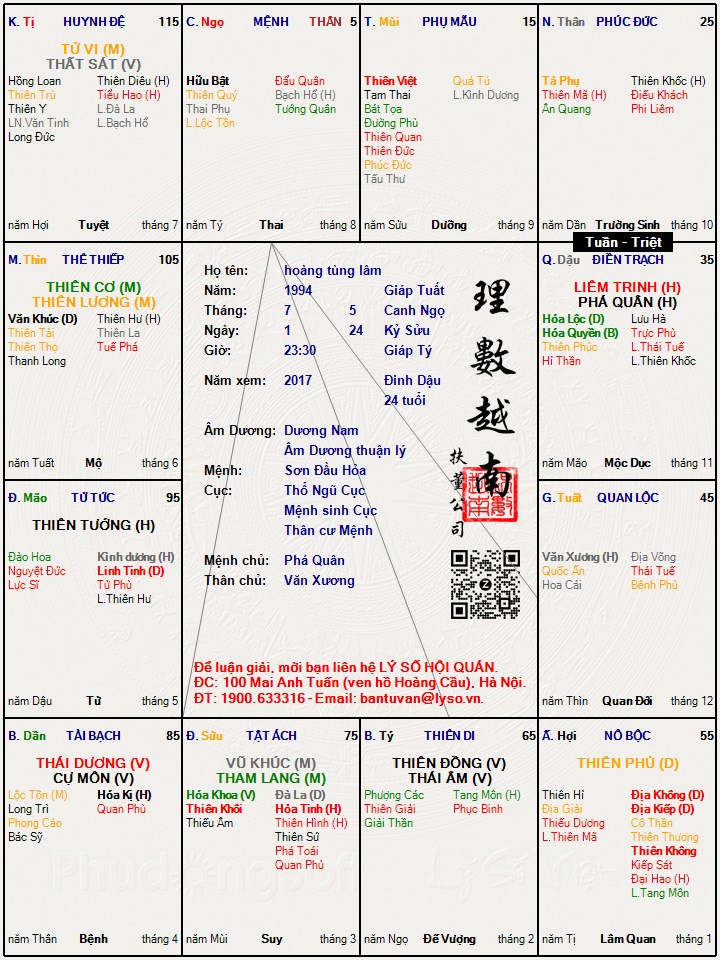 K. Tị HUYNH ĐỆ 115
TỬ VI (M)
THẤT SÁT (V)
Hồng Loan Thiên Diêu (H)
Thiên Trù Tiểu Hao (H)
Thiên Y L.Đà La
LN.Văn Tinh L.Bạch Hổ
Long Đức
năm Hợi Tuyệt tháng 7
C. Ngọ MỆNH THÂN 5
Hữu Bật Đẩu Quân
Thiên Quý Bạch Hổ (H)
Thai Phụ Tướng Quân
L.Lộc Tồn
năm Tý Thai tháng 8
T. Mùi PHỤ MẪU 15
Thiên Việt Quả Tú
Tam Thai L.Kình Dương
Bát Tọa
Đường Phù
Thiên Quan
Thiên Đức
Phúc Đức
Tấu Thư
năm Sửu Dưỡng tháng 9
N. Thân PHÚC ĐỨC 25
Tả Phụ Thiên Khốc (H)
Thiên Mã (H) Điếu Khách
Ân Quang Phi Liêm
năm Dần Trường Sinh tháng 10
Tuần - Triệt
M. Thìn THÊ THIẾP 105
THIÊN CƠ (M)
THIÊN LƯƠNG (M)
Văn Khúc (D) Thiên Hư (H)
Thiên Tài Thiên La
Thiên Thọ Tuế Phá
Thanh Long
năm Tuất Mộ tháng 6
Họ tên: hoàng tùng lâm
Năm: 1994 Giáp Tuất
Tháng: 7 5 Canh Ngọ
Ngày: 1 24 Kỷ Sửu
Giờ: 23:30 Giáp Tý
Năm xem: 2017 Đinh Dậu
24 tuổi
Âm Dương: Dương Nam
Âm Dương thuận lý
Mệnh: Sơn Đầu Hỏa
Cục: Thổ Ngũ Cục
Mệnh sinh Cục
Thân cư Mệnh
Mệnh chủ: Phá Quân
Thân chủ: Văn Xương
理數越南
扶董公司
Để luận giải, mời bạn liên hệ LÝ SỐ HỘI QUÁN.
ĐC: 100 Mai Anh Tuấn (ven hồ Hoàng Cầu), Hà Nội.
ĐT: 1900.633316 - Email: bantuvan@lyso.vn.
Q. Dậu ĐIỀN TRẠCH 35
LIÊM TRINH (H)
PHÁ QUÂN (H)
Hóa Lộc (D) Lưu Hà
Hóa Quyền (B) Trực Phù
Thiên Phúc L.Thái Tuế
Hỉ Thần L.Thiên Khốc
năm Mão Mộc Dục tháng 11
Đ. Mão TỬ TỨC 95
THIÊN TƯỚNG (H)
Đào Hoa Kình dương (H)
Nguyệt Đức Linh Tinh (D)
Lực Sĩ Tử Phù
L.Thiên Hư
năm Dậu Tử tháng 5
G. Tuất QUAN LỘC 45
Văn Xương (H) Địa Võng
Quốc Ấn Thái Tuế
Hoa Cái Bệnh Phù
năm Thìn Quan Đới tháng 12
B. Dần TÀI BẠCH 85
THÁI DƯƠNG (V)
CỰ MÔN (V)
Lộc Tồn (M) Hóa Kị (H)
Long Trì Quan Phù
Phong Cáo
Bác Sỹ
năm Thân Bệnh tháng 4
Đ. Sửu TẬT ÁCH 75
VŨ KHÚC (M)
THAM LANG (M)
Hóa Khoa (V) Đà La (D)
Thiên Khôi Hỏa Tinh (H)
Thiếu Âm Thiên Hình (H)
Thiên Sứ
Phá Toái
Quan Phủ
năm Mùi Suy tháng 3
B. Tý THIÊN DI 65
THIÊN ĐỒNG (V)
THÁI ÂM (V)
Phượng Các Tang Môn (H)
Thiên Giải Phục Binh
Giải Thần
năm Ngọ Đế Vượng tháng 2
Ấ. Hợi NÔ BỘC 55
THIÊN PHỦ (D)
Thiên Hỉ Địa Không (D)
Địa Giải Địa Kiếp (D)
Thiếu Dương Cô Thần
L.Thiên Mã Thiên Thương
Thiên Không
Kiếp Sát
Đại Hao (H)
L.Tang Môn
năm Tị Lâm Quan tháng 1